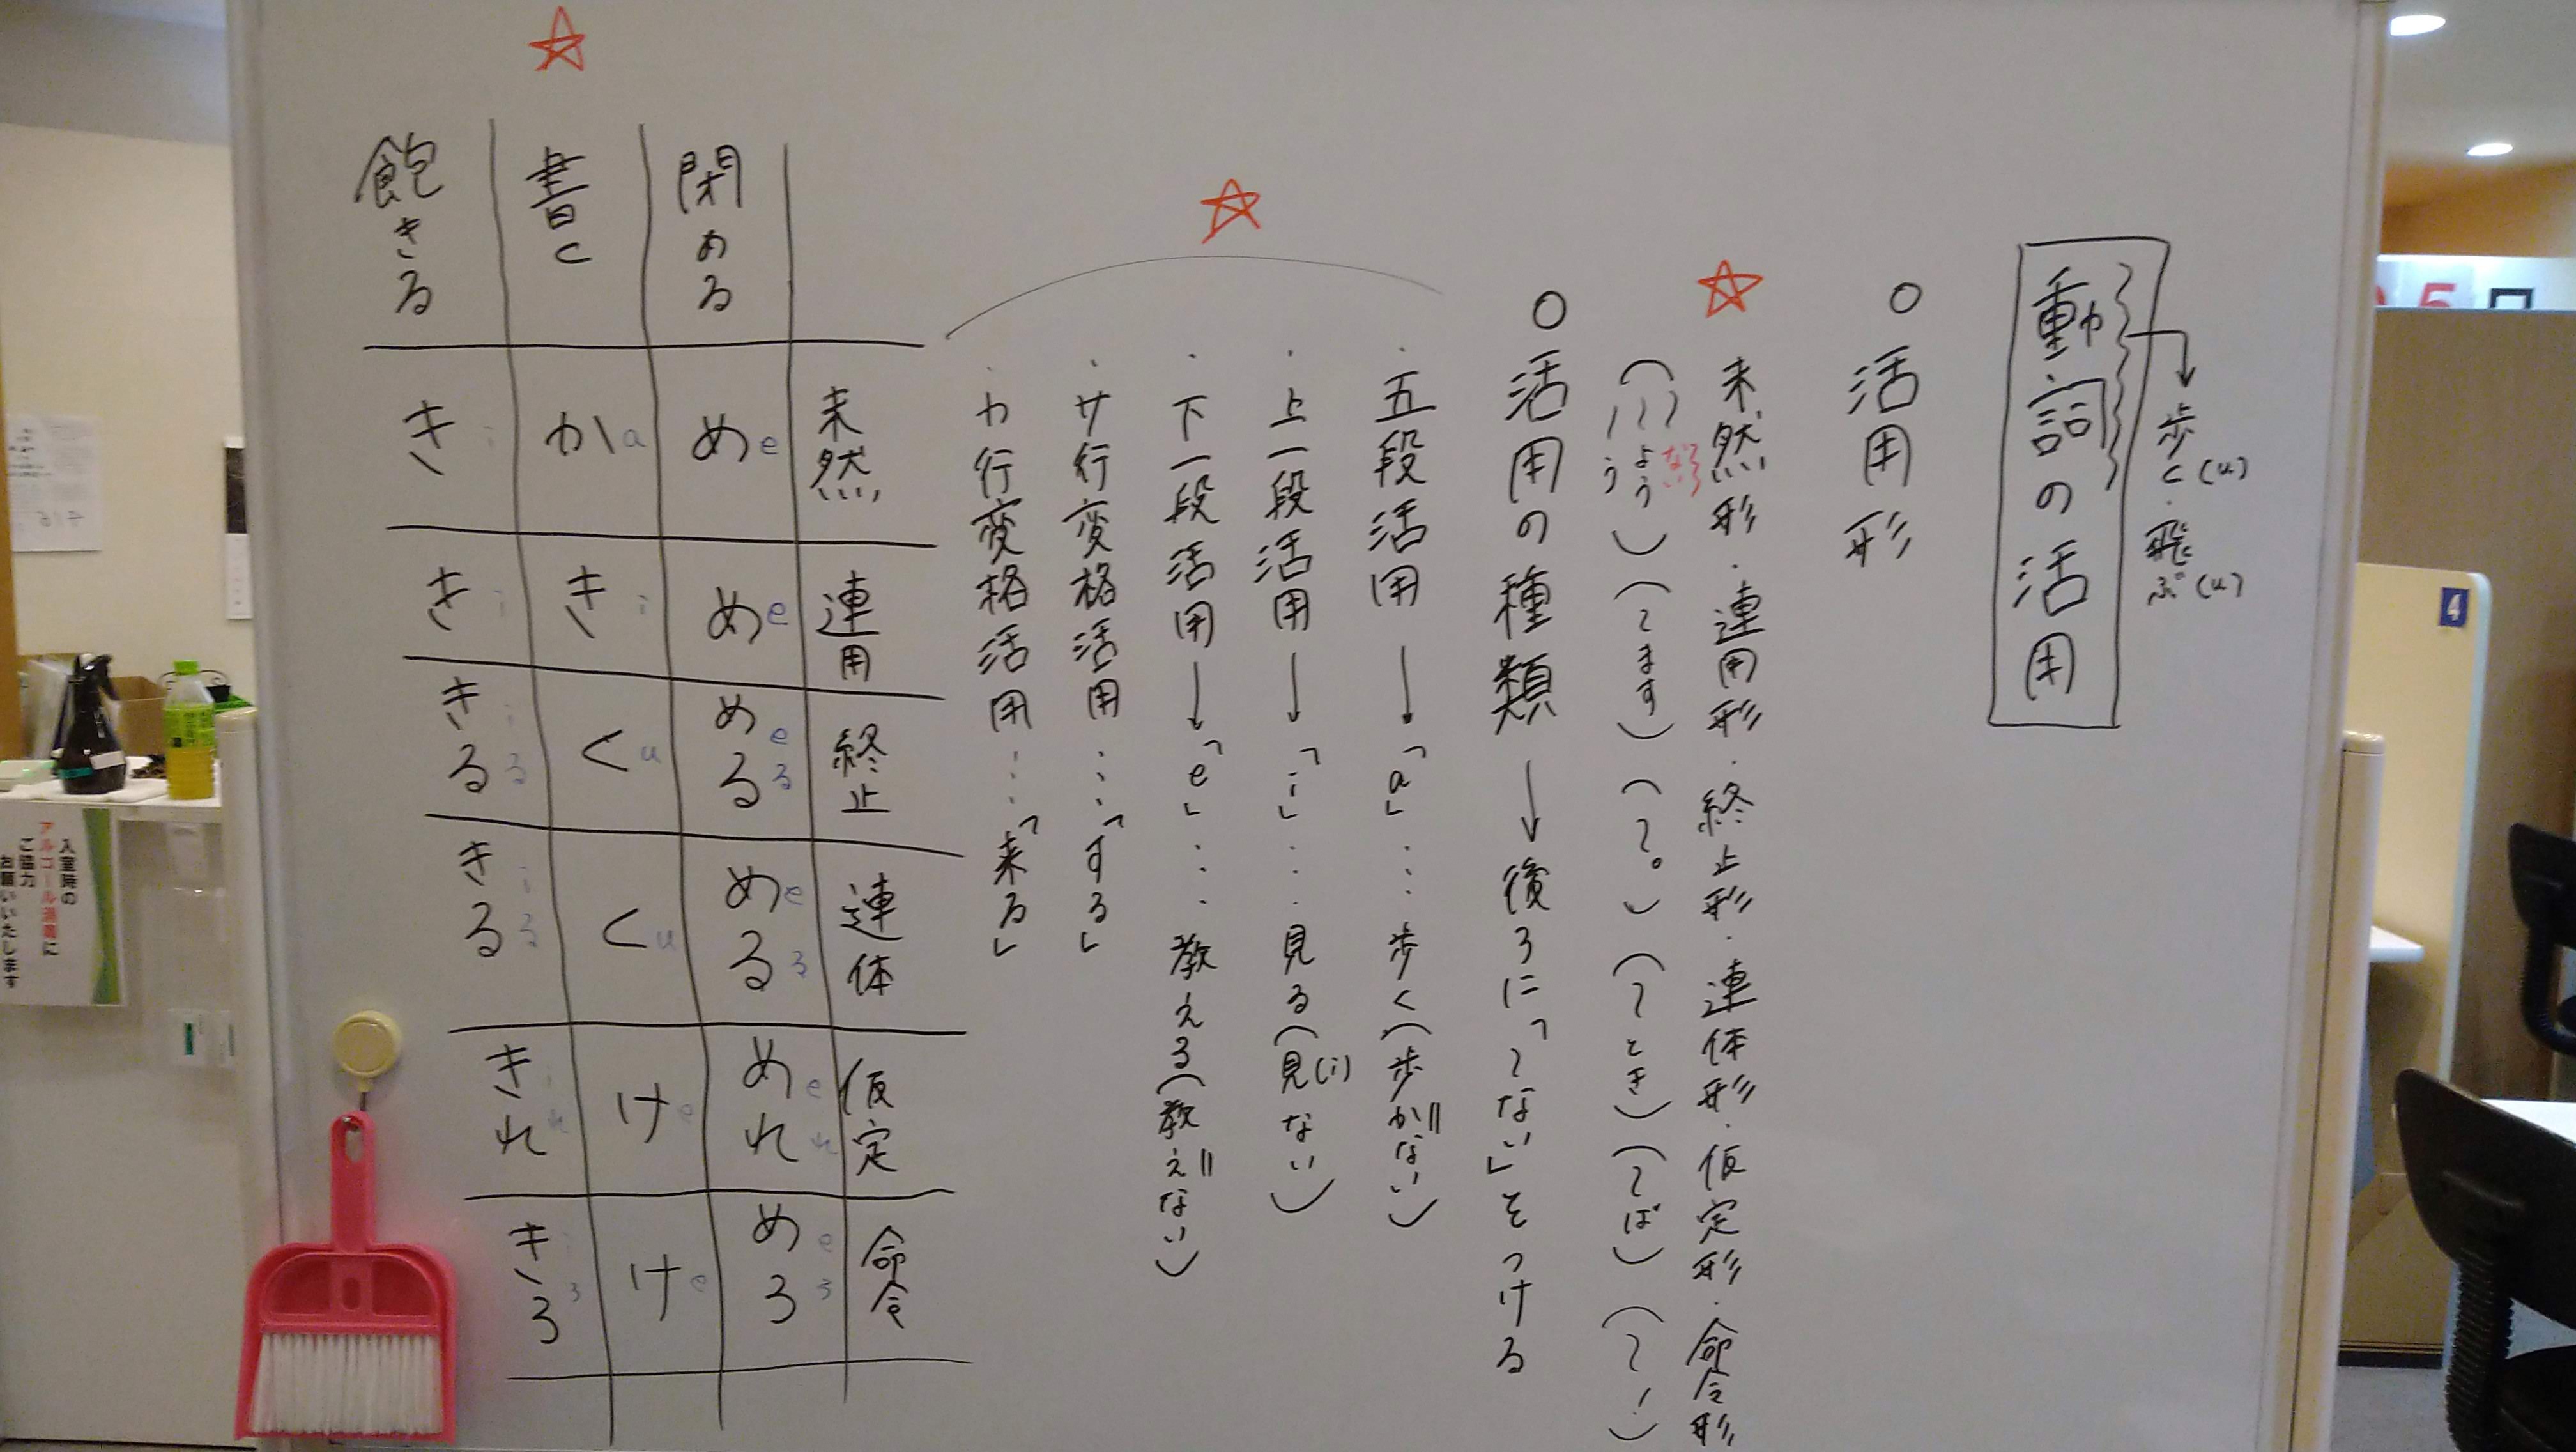 動詞の活用
歩く(u)・飛ぶ(u)
○活用形
未然形・連用形・終止形・連体形・仮定形・命令形
(〜ない 〜よう 〜う)(〜ます)(〜。)(〜とき)(〜ば)(〜！)
○活用の種類→後ろに「〜ない」をつける
・五段活用→「a」……歩く(歩かない)
・上一段活用→「i」……見る(見(i)ない)
・下一段活用→「e」……教える(教えない)
・サ行変格活用……「する」
・カ行変格活用……「来る」
未然 連用 終止 連体 仮定 命令
閉める め e め e める eる める eる めれ eれ めろ eろ
書く か a き i く u く u け e け e
飽きる き i き i きる iる きる iる きれ iれ きろ iろ
入室時の
アルコール消毒に
ご協力
お願いいたします
4
5